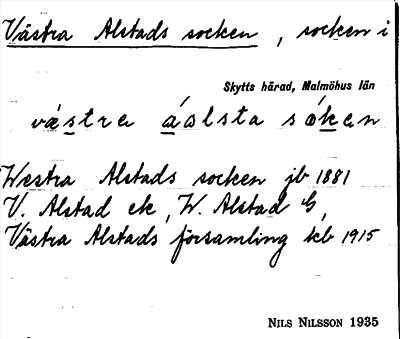 Västra Alstads socken, socken i
Skytts härad, Malmöhus län
västra áalsta sákan
Westra Alstads socken jb 1881
V. Alstad ek, W. Alstad G,
Västra Alstads församling kb 1915
NILS NILSSON 1935